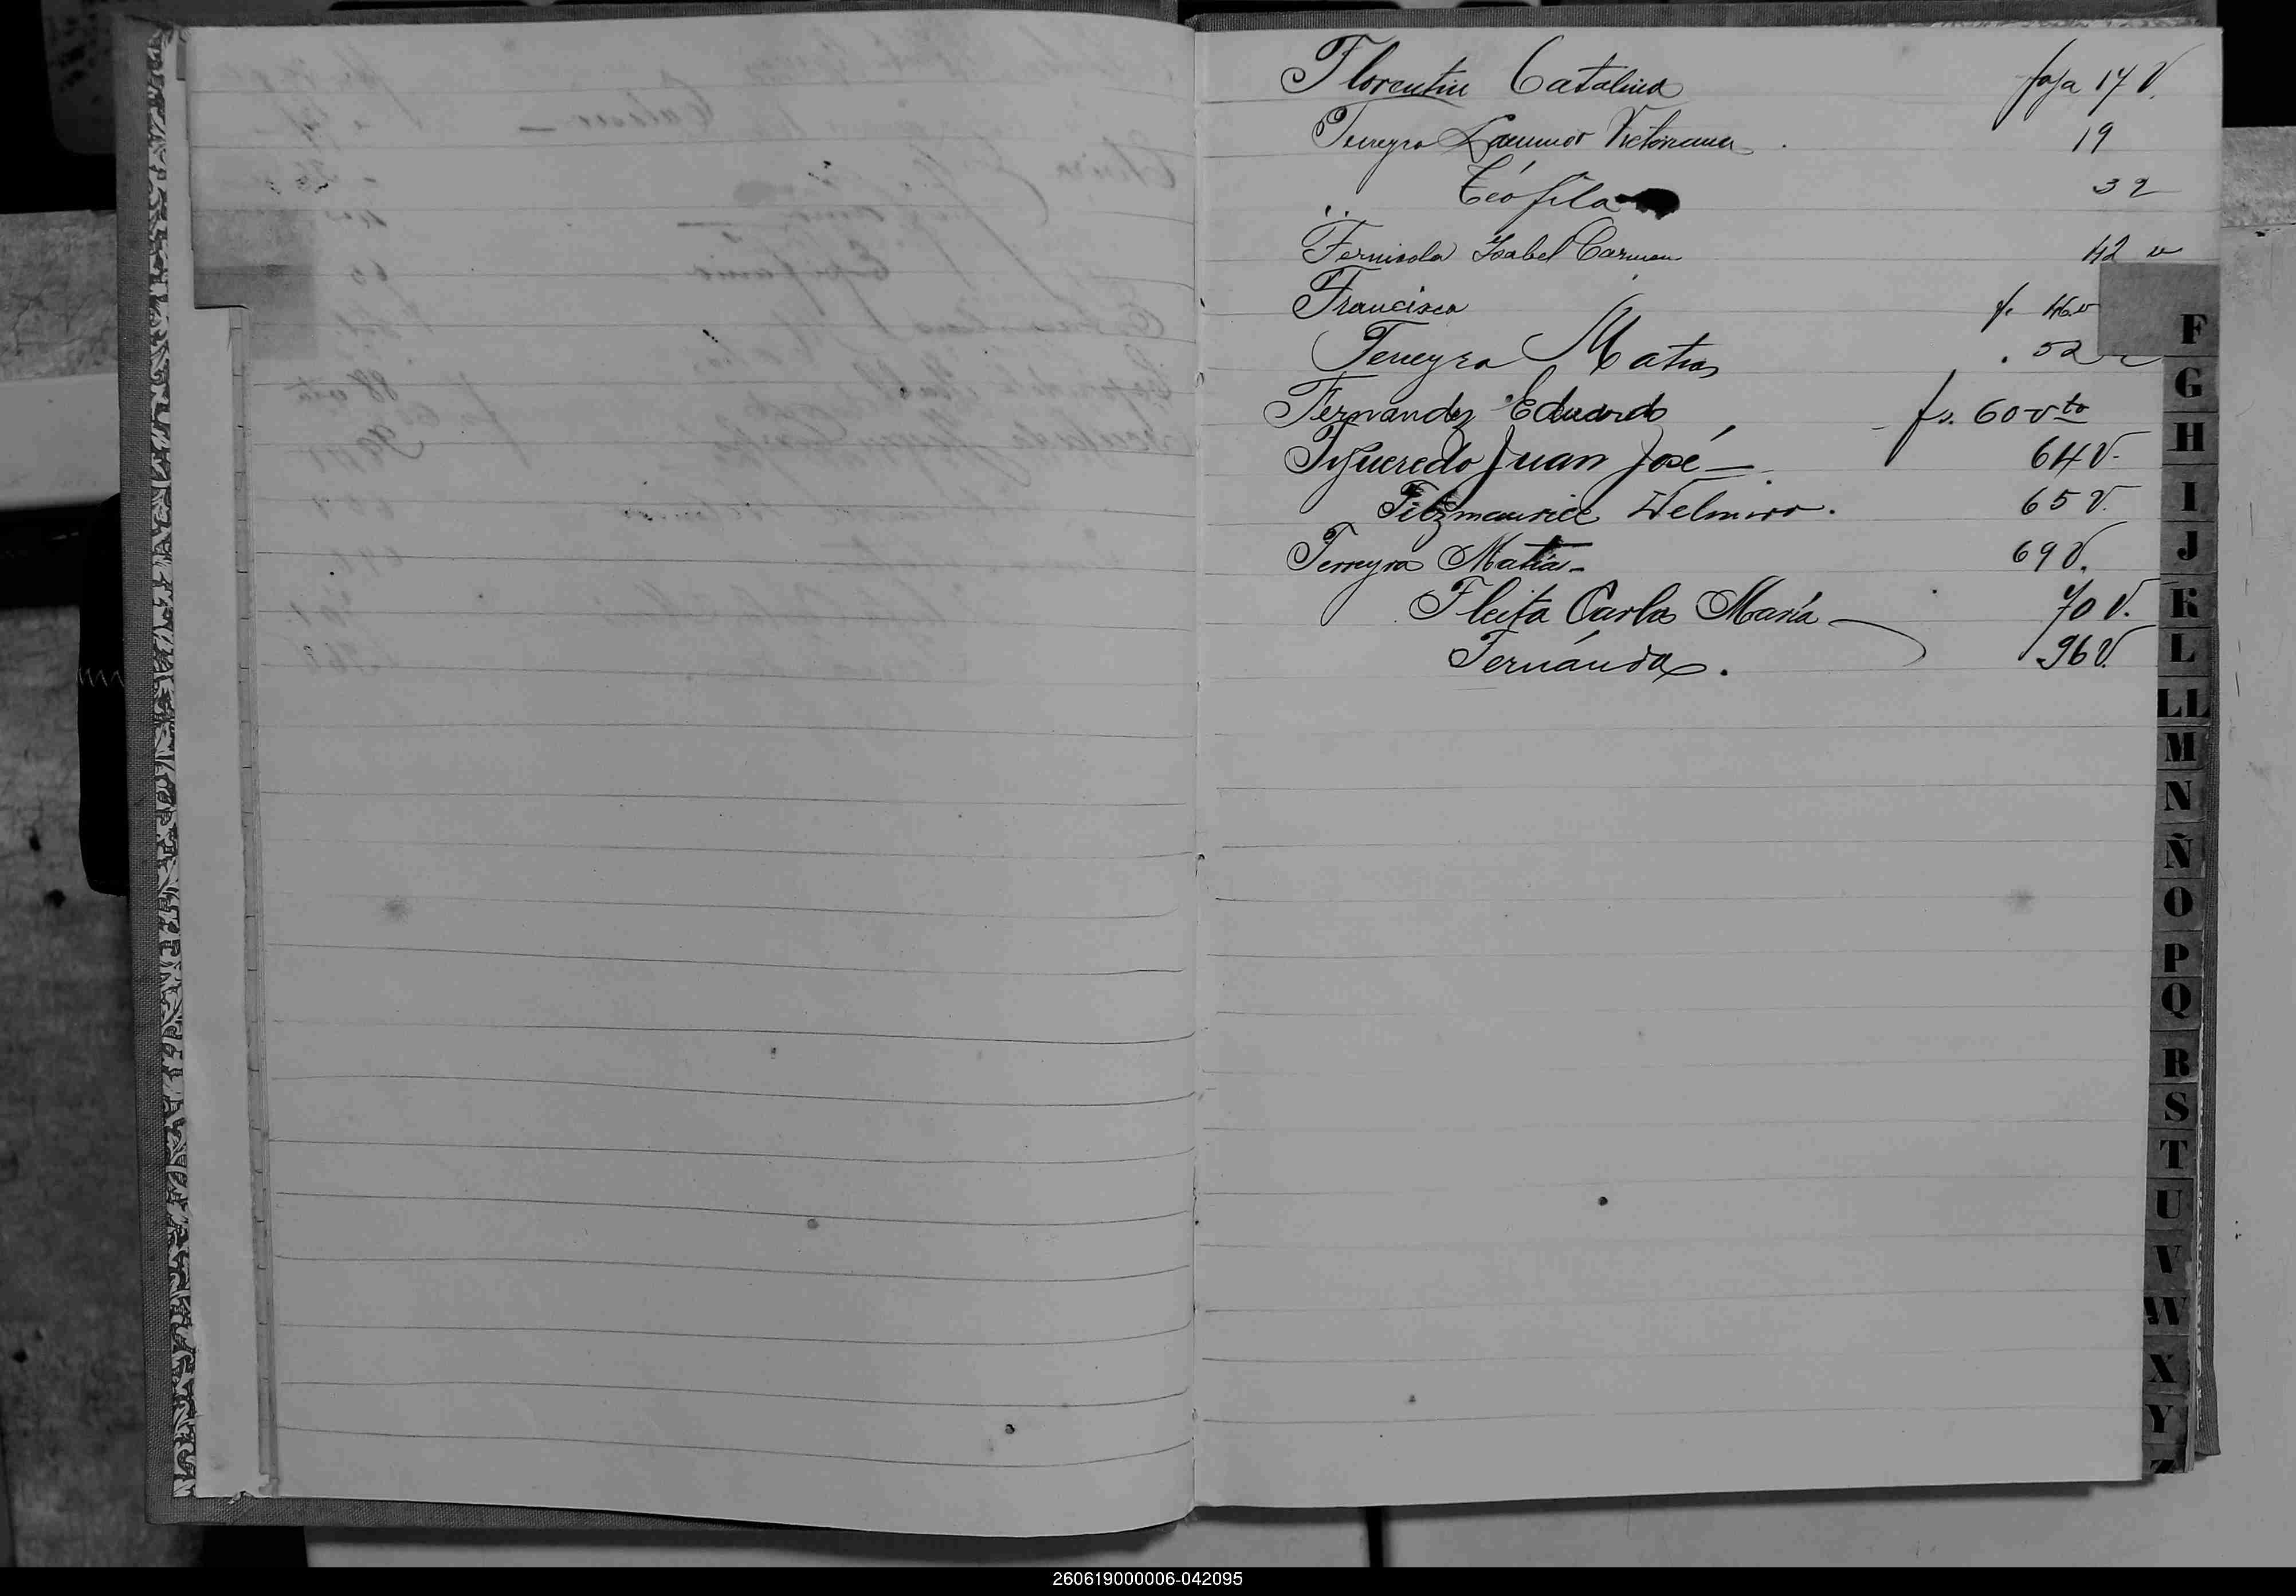 Florentin Catalina foja 17 V.
Ferreyra Victoriana 19
" Teófila 32
Fernisola Isabel Carmen 42 v
Francisca f. 46v
Ferreyra Matias 52 v
Fernandez Eduardo fs. 60 vto
Figueredo Juan José 64 V.
Fitzmaurice Velmiro. 65 V.
Ferreyra Matías 69 V.
Fleita Carlos María 70 V.
Fernánda. 96 V.
F
G
H
I
J
K
L
LL
M
N
Ñ
O
P
Q
R
S
T
U
V
W
X
Y
Z
260619000006-042095